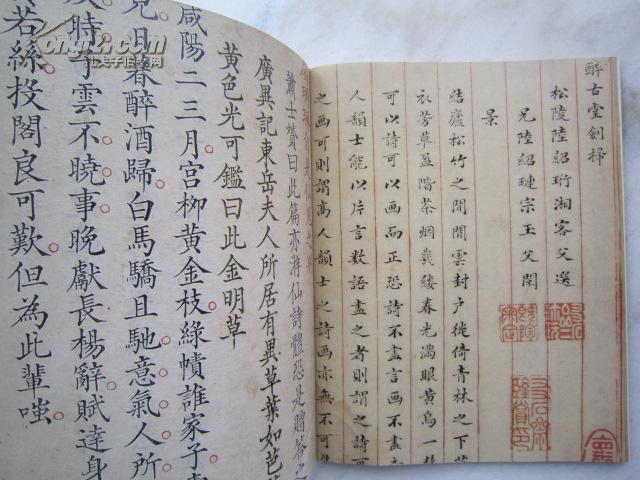 醉古堂劍掃
松陵陸紹珩湘客父選
兄陸紹璉宗玉父閱
景
結廬松竹之間閒雲封户徙倚青林之下
衣芳草盈階茶烟幾縷春光滿眼黃鳥一
可以詩可以画而正恐詩不盡言画不盡
人韻士能以片言數語盡之者則謂之詩可
之画可則謂高人韻士之詩画亦無不可
蕭士贇曰此篇亦游仙詩體恐是贈答之
廣異記東岳夫人所居有異草葉如芭
黃色光可鑑曰此金明草
咸陽二三月宮柳黃金枝綠幘誰家子
日暮醉酒歸白馬驕且馳意氣人所
時子雲不曉事晚獻長楊辭賦達身
若絲投閣良可歎但為此輩嗤
孔夫子旧书网